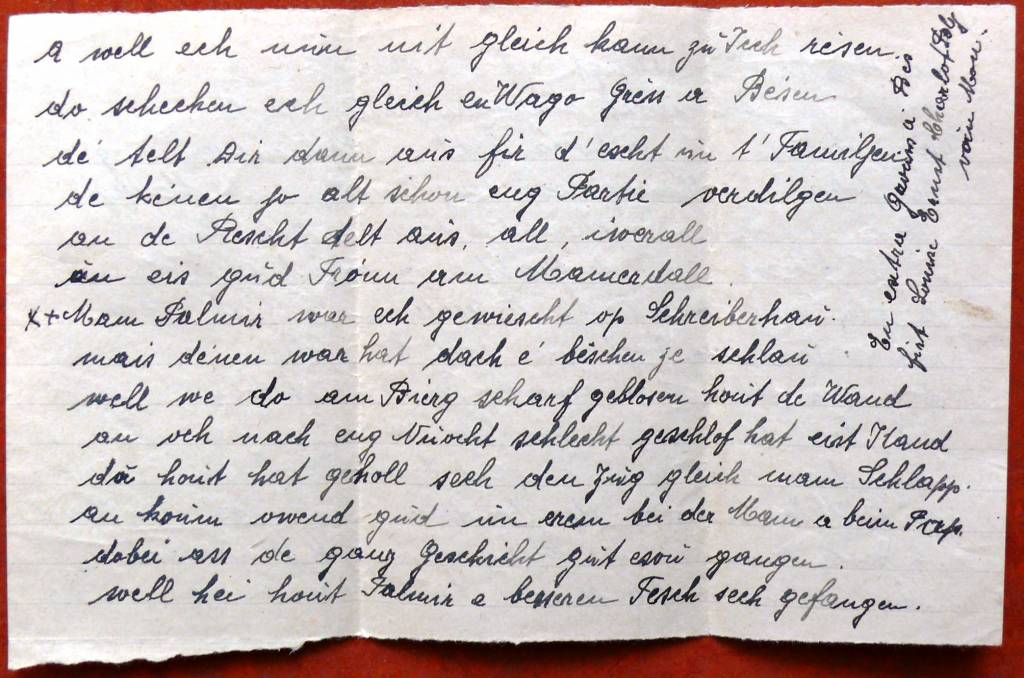 a well ech nun nit gleich kann zu Iech reisen.
do schecken ech gleich en Wago Griss a Bésen
dé telt Dir dann aus fir d'éscht un t'Familjen
de kënen jo alt schon eng Partie verdilgen
an de Rescht delt aus, all, iwerall
an eis gud Frönn am Mamerdall.
x+ Mam Palmir war ech gewiescht op Schreiberhau.
mais dénen war hat dach e' béschen ze schlau
well we do am Bierg scharf geblosen hout de Wand
an och nach eng Nuecht schlecht geschlof hat eist Kand
du hout hat geholl sech den Zug gleich mam Schlapp.
an koum owend gud un erem bei der Mam a beim Pap.
dobei ass de ganz Geschicht gut esou gangen.
well hei hout Palmir e besseren Fesch sech gefangen.
En extra Gruss a Bis
firt Louise Ernst Charlot Poly
vum Mon.